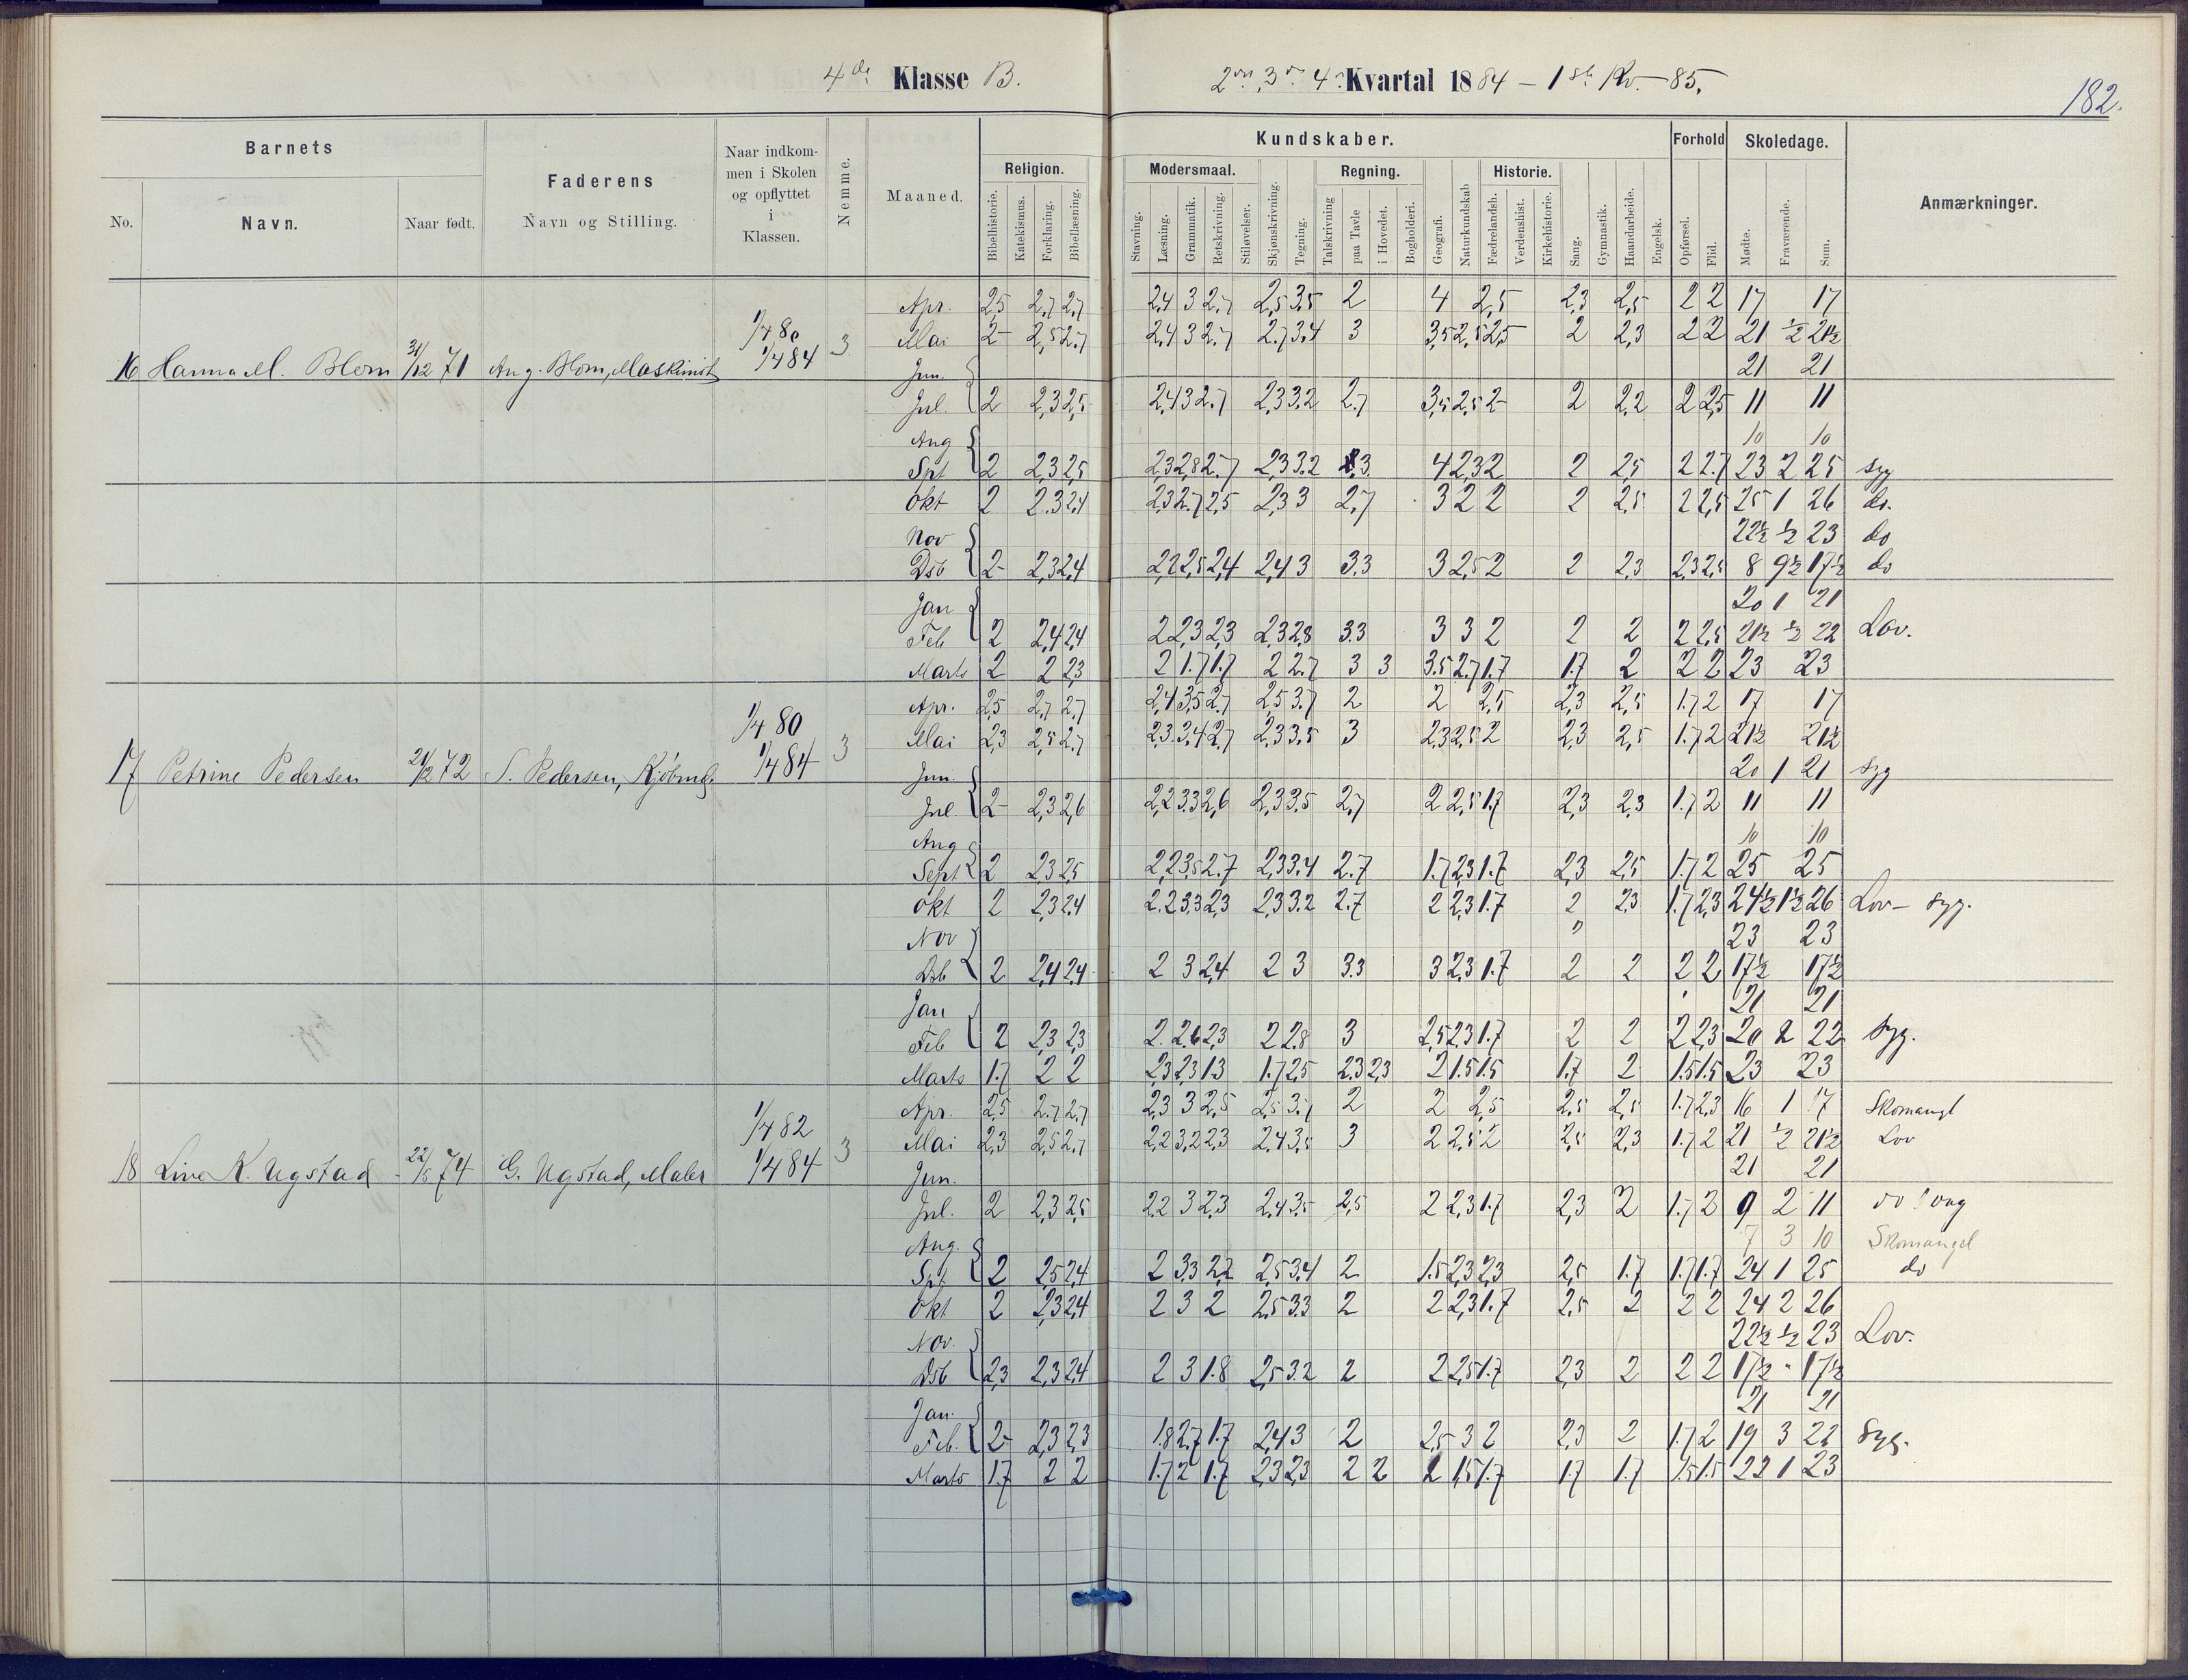 4de Klasse B. 2den, 3de, 4de Kvartal 1884 – 1ste Kv. – 85.
182.
Barnets
Faderens
Naar indkommen i Skolen og opflyttet i Klassen.
Nemme.
Maaned.
Kundskaber.
Forhold
Skoledage.
Anmærkninger.
No. Navn. Naar født. Navn og Stilling.
Religion. Modersmaal. Regning. Historie.
Bibelhistorie. Katekismus. Forklaring. Bibellæsning. Stavning. Læsning. Grammatik. Retskrivning. Stiløvelser. Skjønskrivning. Tegning. Talskrivning paa Tavle i Hovedet. Bogholderi. Geografi. Naturkundskab Fædrelandsh. Verdenshist. Kirkehistorie. Sang. Gymnastik. Haandarbeide. Engelsk. Opførsel. Flid. Mødte. Fraværende. Sum.
16 Hanna M. Blom 31/12 71 Aug. Blom, Maskinist 1/4 80 1/4 84 3
Apr. 2,5 2,7 2,7 2,4 3 2,7 2,5 3,5 2 4 2,5 2,3 2,5 2 2 17 17
Mai 2- 2,5 2,7 2,4 3 2,7 2,7 3,4 3 3,5 2,5 2,5 2 2,3 2 2 21 ½ 21½
Jun. 21 21
Jul. 2 2,3 2,5 2,4 3 2,7 2,3 3,2 2,7 3,5 2,5 2- 2 2,2 2 2,5 11 11
Aug 10 10
Spt 2 2,3 2,5 2,3 2,8 2,7 2,3 3,2 4 2,3 2 2 2,5 2 2,7 23 2 25 syg
Okt 2 2.3 2,4 2,3 2,7 2,5 2,3 3 2,7 3 2 2 2 2,5 2 2,5 25 1 26 do.
Nov 22½ ½ 23 do
Dsb 2- 2,3 2,4 2,2 2,5 2,4 2,4 3 3.3 3 2,5 2 2 2,3 2,3 2,5 8 9½ 17½ do
Jan 20 1 21
Feb 2 2,4 2,4 2 2,3 2,3 2,3 2,8 3.3 3 3 2 2 2 2 2,5 21½ ½ 22 Lov.
Marts 2 2 2,3 2 1.7 1.7 2 2.7 3 3 3.5 2.7 1.7 1.7 2 2 2 23 23
17 Petrine Pedersen 21/2 72 S. Pedersen, Kjøbmd. 1/4 80 1/4 84 3
Apr. 2,5 2,7 2,7 2,4 3,5 2,7 2,5 3,7 2 2 2,5 2,3 2,5 1.7 2 17 17
Mai 2,3 2,5 2,7 2,3 3,4 2,7 2,3 3,5 3 2,3 2,5 2 2,3 2,5 1.7 2 21½ 21½
Jun. 20 1 21 syg
Jul. 2- 2,3 2,6 2,2 3.3 2,6 2,3 3,5 2,7 2 2,5 1.7 2,3 2,3 1.7 2 11 11
Aug 10 10
Sept 2 2,3 2,5 2,2 3,5 2.7 2,3 3,4 2.7 1.7 2,3 1.7 2,3 2,5 1.7 2 25 25
Okt 2 2,3 2,4 2.2 3,3 2,3 2,3 3.2 2.7 2 2,3 1.7 2 2,3 1.7 2,3 24½ 1½ 26 Lov – syg.
Nov 23 23
Dsb 2 2,4 2,4 2 3 2,4 2 3 3.3 3 2,3 1.7 2 2 2 2 17½ 17½
Jan 21 21
Feb 2 2,3 2,3 2. 2.6 2,3 2 2.8 3 2,5 2,3 1.7 2 2 2 2,3 20 2 22 syg.
Marts 1.7 2 2 2,3 2,3 1.3 1.7 2,5 2.3 2,3 2 1.5 1.5 1.7 2 1.5 1.5 23 23
18 Lina K. Ugstad 22/5 74 G. Ugstad, Maler 1/4 82 1/4 84 3
Apr. 2,5 2.7 2,7 2,3 3 2,5 2,5 3.7 2 2 2,5 2,5 2,5 1.7 2,3 16 1 17 Skomangl
Mai 2,3 2,5 2,7 2,2 3,2 2,3 2.4 3,5 3 2 2,5 2 2,5 2,3 1.7 2 21 ½ 21½ Lov
Jun. 21 21
Jul. 2 2,3 2,5 2,2 3 2,3 2.4 3,5 2,5 2 2,3 1.7 2,3 2 1.7 2 9 2 11
Aug. 7 3 10 Skomangel
Spt 2 2,5 2,4 2 3,3 2,2 2,5 3,4 2 1.5 2,3 2,3 2,5 1.7 1.7 1.7 24 1 25 do
Okt 2 2,3 2,4 2 3 2 2,5 3.3 2 2 2,3 1.7 2,5 2 2 2 24 2 26
Nov. 22½ ½ 23 Lov.
Dsb 2,3 2,3 2,4 2 3 1.8 2,5 3.2 2 2 2,5 1.7 2,3 2 2 2 17½ 17½
Jan. 21 21
Feb. 2- 2,3 2,3 1.8 2,7 1.7 2,4 3 2 2,5 3 2 2,3 2 1.7 2 19 3 22 Syg.
Marts 1.7 2 2 1.7 2 1.7 2,3 2,3 2 2 2 1,5 1.7 1.7 1.7 1.5 1.5 22 1 23